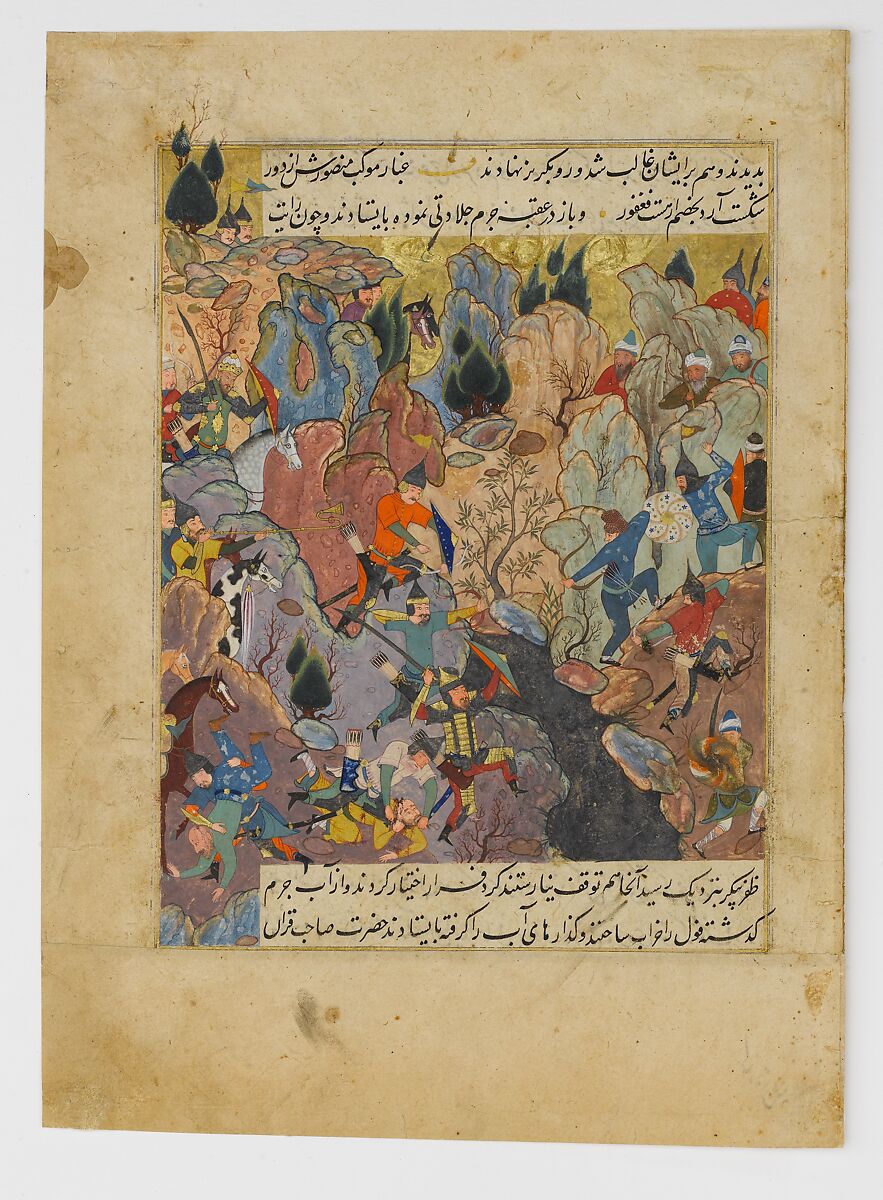 بدیدند وهم برایشان غالب شد و رو بگریز نهادند غبار موکب منصورش از دور
شکست آرد بخصم ار هست فغفور و باز در عقبهٔ جرم جلادتی نموده بایستادند و چون رایت
ظفرپیکر نزدیک رسید آنجا هم توقف نیارستند کرد فرار اختیار کردند و از آب جرم
گذشته قول را خراب ساختند و گذارهای آب را گرفته بایستادند حضرت صاحب قران